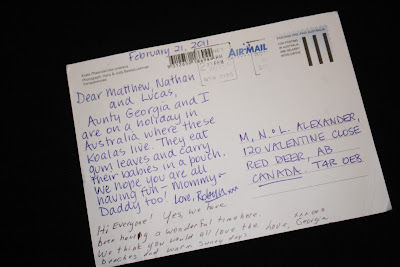 February 21, 2011
AIR MAIL
Dear Matthew, Nathan
and Lucas,
Aunty Georgia and I
are on a holiday in
Australia where these
Koalas live. They eat
gum leaves and carry
their babies in a pouch.
We hope you are all
having fun - Mommy &
Daddy too! Love, Robyn xxx
Hi Everyone! Yes, we have
been having a wonderful time here.
We think you would all love the
beaches and warm sunny days.
Love, Georgia
M, N & L. ALEXANDER,
120 VALENTINE CLOSE
RED DEER, AB
CANADA T4R 0E8